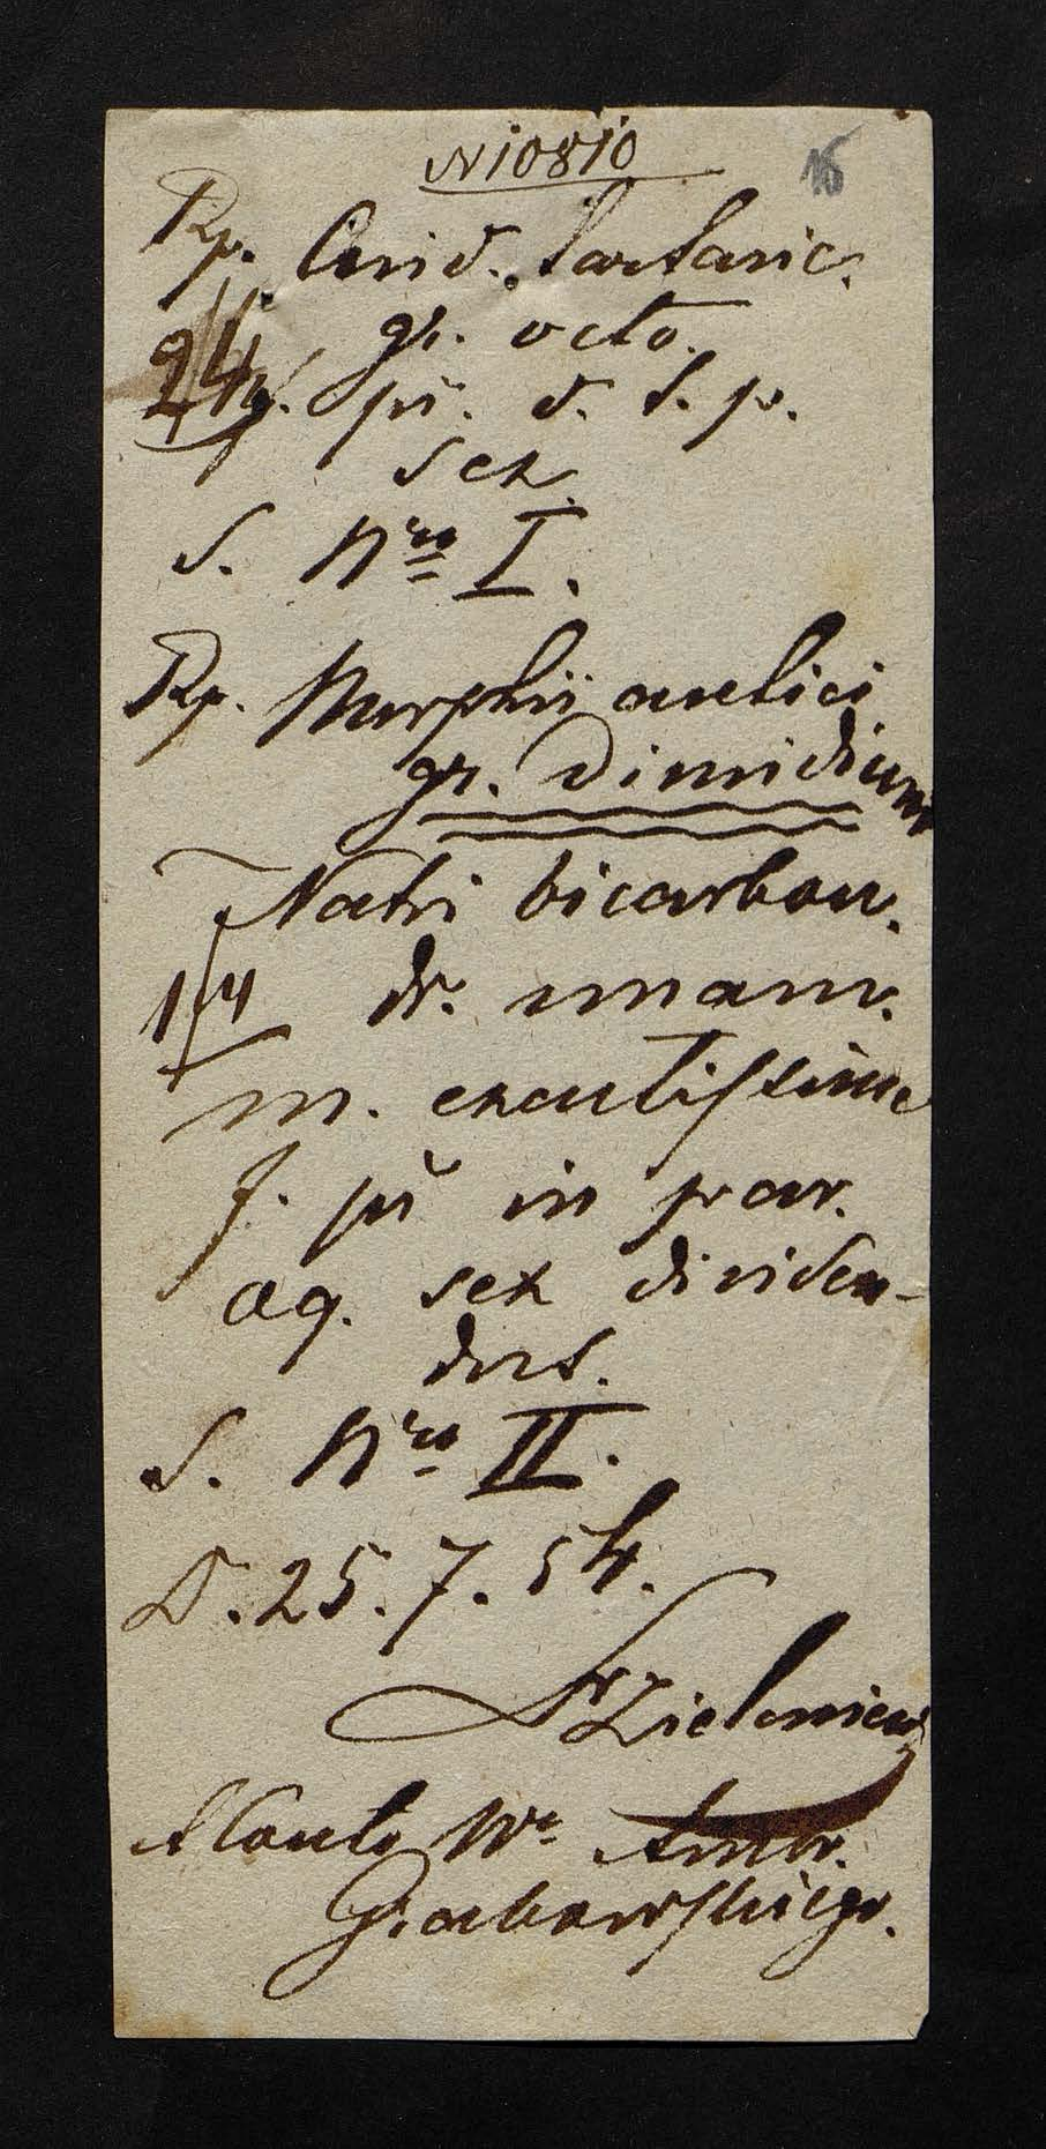 N 10810
16
Rp. Acid. tartaric.
gr. octo.
24 pv. d. t. p.
sex
S. Nro I.
Rp. Morphii acetici
gr. dimidium
Natri bicarbon.
1/4 dr. unam.
m. exactissime
f. pv in par.
aq. sex dividen-
dus.
S. Nro II.
D. 25. 7. 54.
Zieleniew
A Conto Wo Ambr.
Grabowskiego.